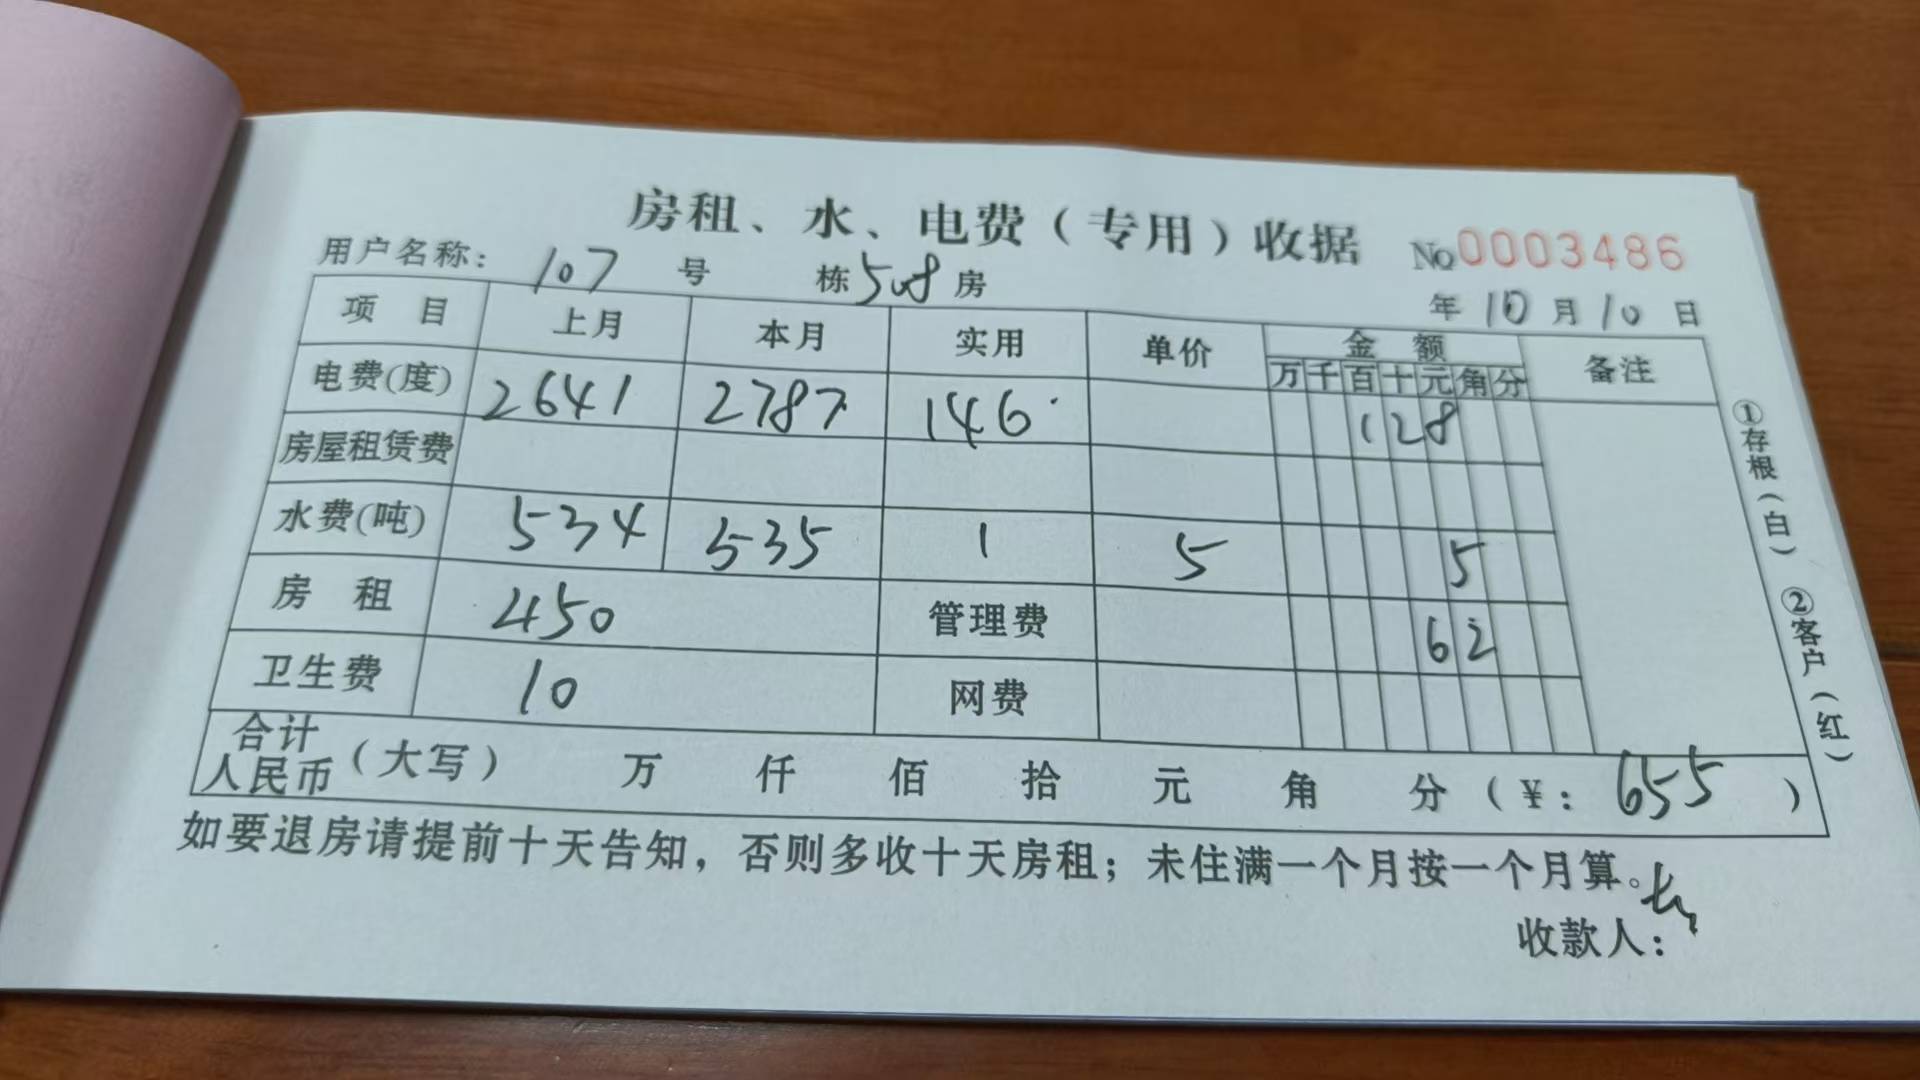 房租、水、电费（专用）收据 No 0003486
用户名称：107 号 栋 508 房
年 10 月 10 日
项目 上月 本月 实用 单价 金额 备注
万 千 百 十 元 角 分
电费(度) 2641 2787 146 128
房屋租赁费
水费(吨) 534 535 1 5 5
房租 450 管理费 62
卫生费 10 网费
合计人民币（大写） 万 仟 佰 拾 元 角 分（¥：655）
如要退房请提前十天告知，否则多收十天房租；未住满一个月按一个月算。
收款人：
①存根（白） ②客户（红）